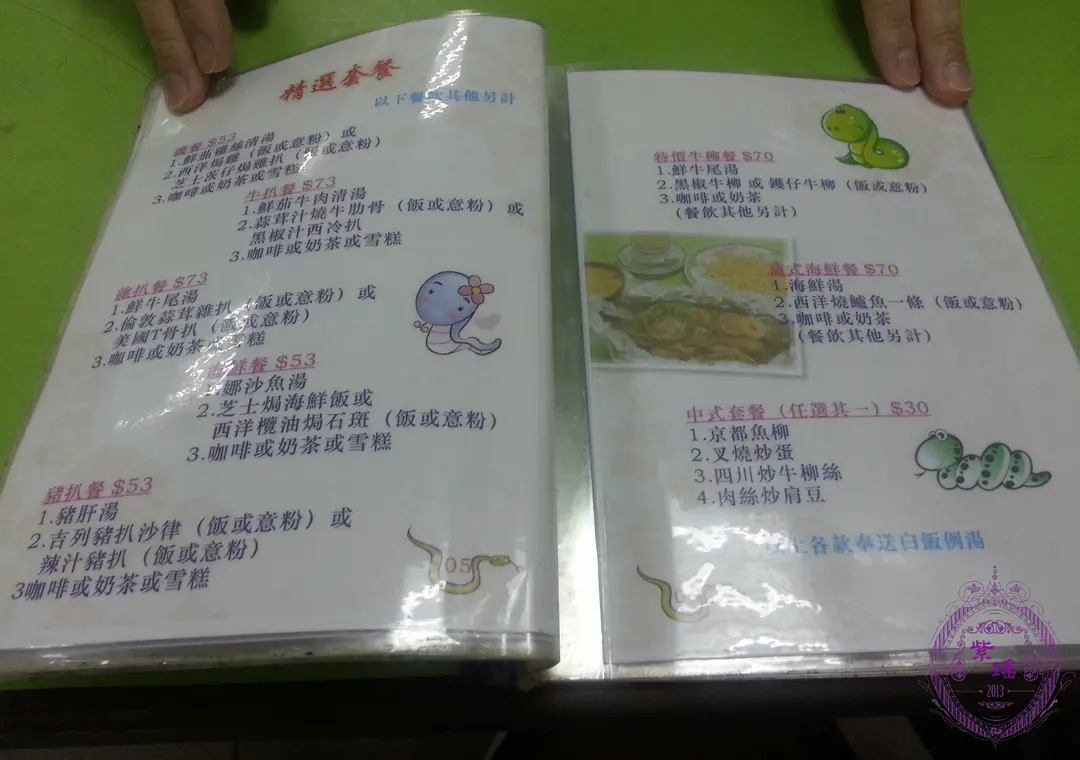 精選套餐
以下餐飲其他另計
雞餐 $53
1.鮮茄雞絲清湯
2.西洋焗雞（飯或意粉）或
芝士茨仔焗雞扒（飯或意粉）
3.咖啡或奶茶或雪糕
牛扒餐 $73
1.鮮茄牛肉清湯
2.蒜茸汁燒牛肋骨（飯或意粉）或
黑椒汁西冷扒
3.咖啡或奶茶或雪糕
雜扒餐 $73
1.鮮牛尾湯
2.倫敦蒜茸雜扒（飯或意粉）或
美國T骨扒（飯或意粉）
3.咖啡或奶茶或雪糕
海鮮餐 $53
1.娜沙魚湯
2.芝士焗海鮮飯或
西洋欖油焗石斑（飯或意粉）
3.咖啡或奶茶或雪糕
豬扒餐 $53
1.豬肝湯
2.吉列豬扒沙律（飯或意粉）或
辣汁豬扒（飯或意粉）
3咖啡或奶茶或雪糕
05
特價牛柳餐 $70
1.鮮牛尾湯
2.黑椒牛柳 或 鑊仔牛柳（飯或意粉）
3.咖啡或奶茶
（餐飲其他另計）
葡式海鮮餐 $70
1.海鮮湯
2.西洋燒鱸魚一條（飯或意粉）
3.咖啡或奶茶
（餐飲其他另計）
中式套餐（任選其一）$30
1.京都魚柳
2.叉燒炒蛋
3.四川炒牛柳絲
4.肉絲炒肩豆
以上各款奉送白飯例湯
紫瑤
2013